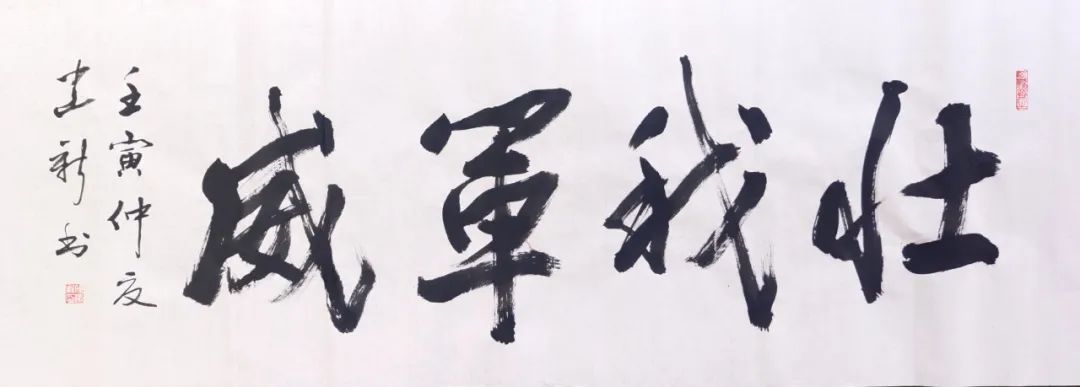 壮我军威
壬寅仲夏
建新书